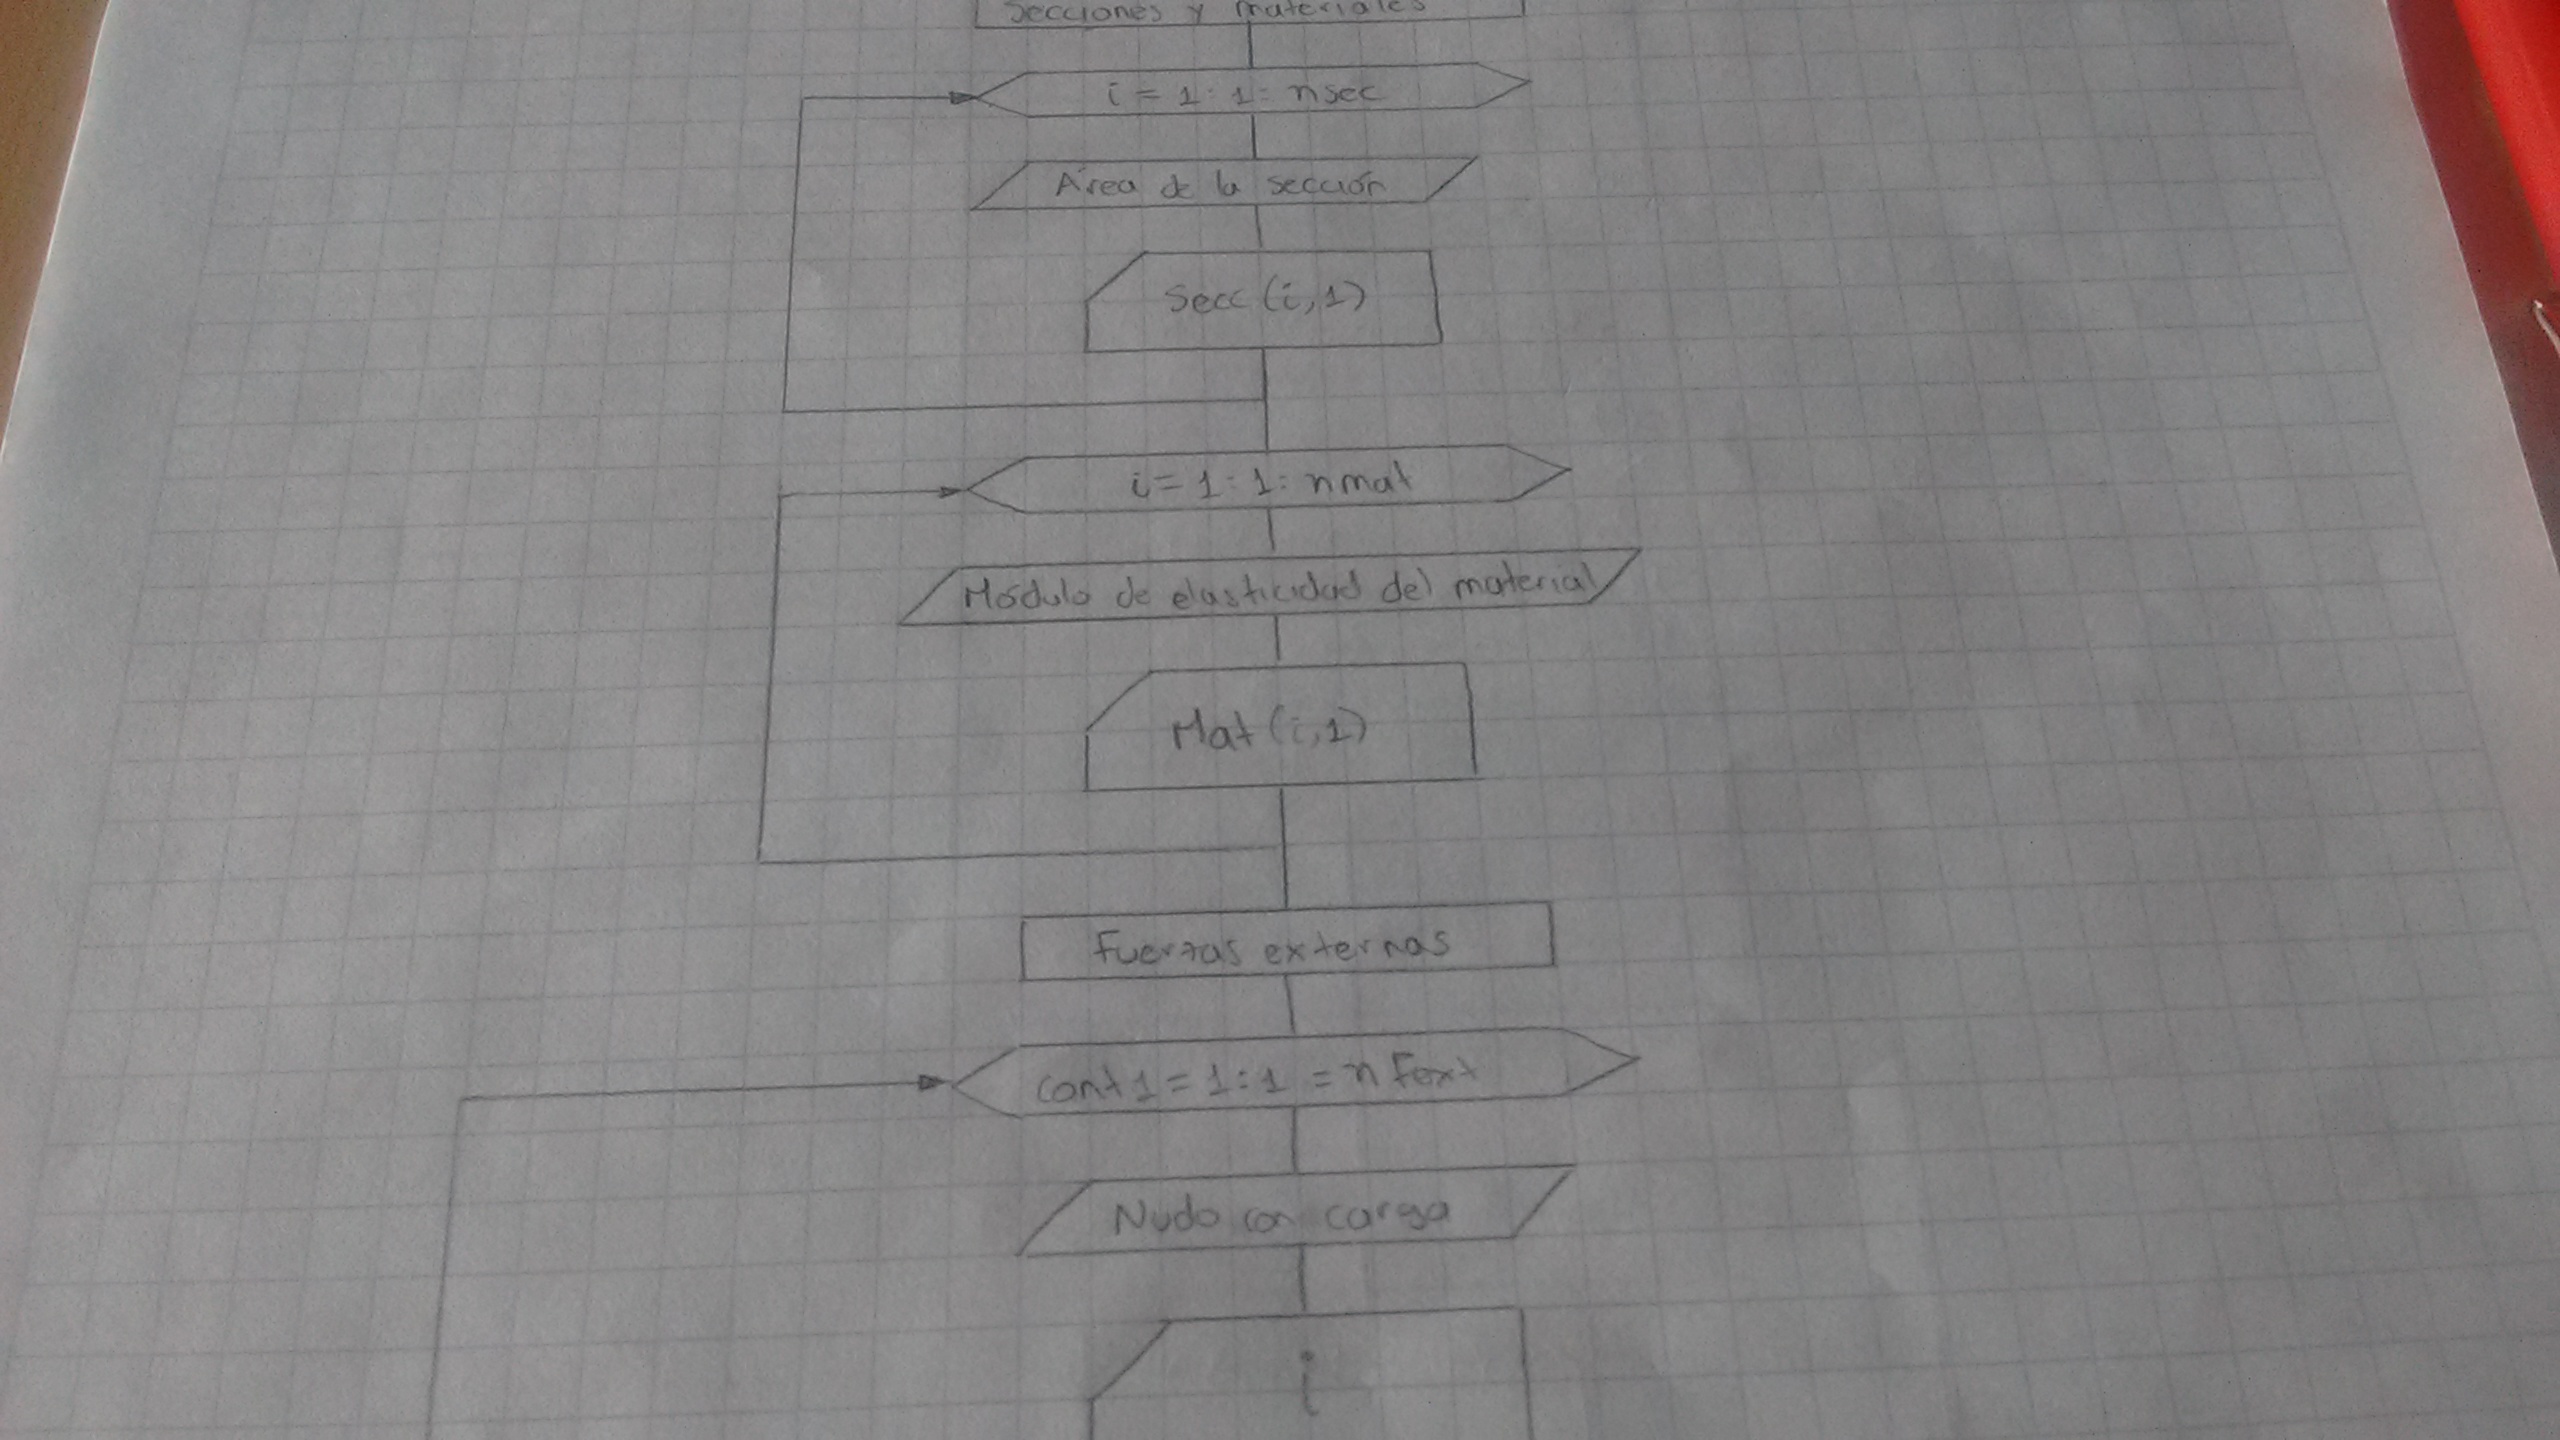 Secciones y materiales
i = 1 : 1 : nsec
Área de la sección
Secc (i,1)
i = 1 : 1 : nmat
Módulo de elasticidad del material
Mat (i,1)
Fuerzas externas
cont1 = 1 : 1 = nFext
Nudo con carga
i